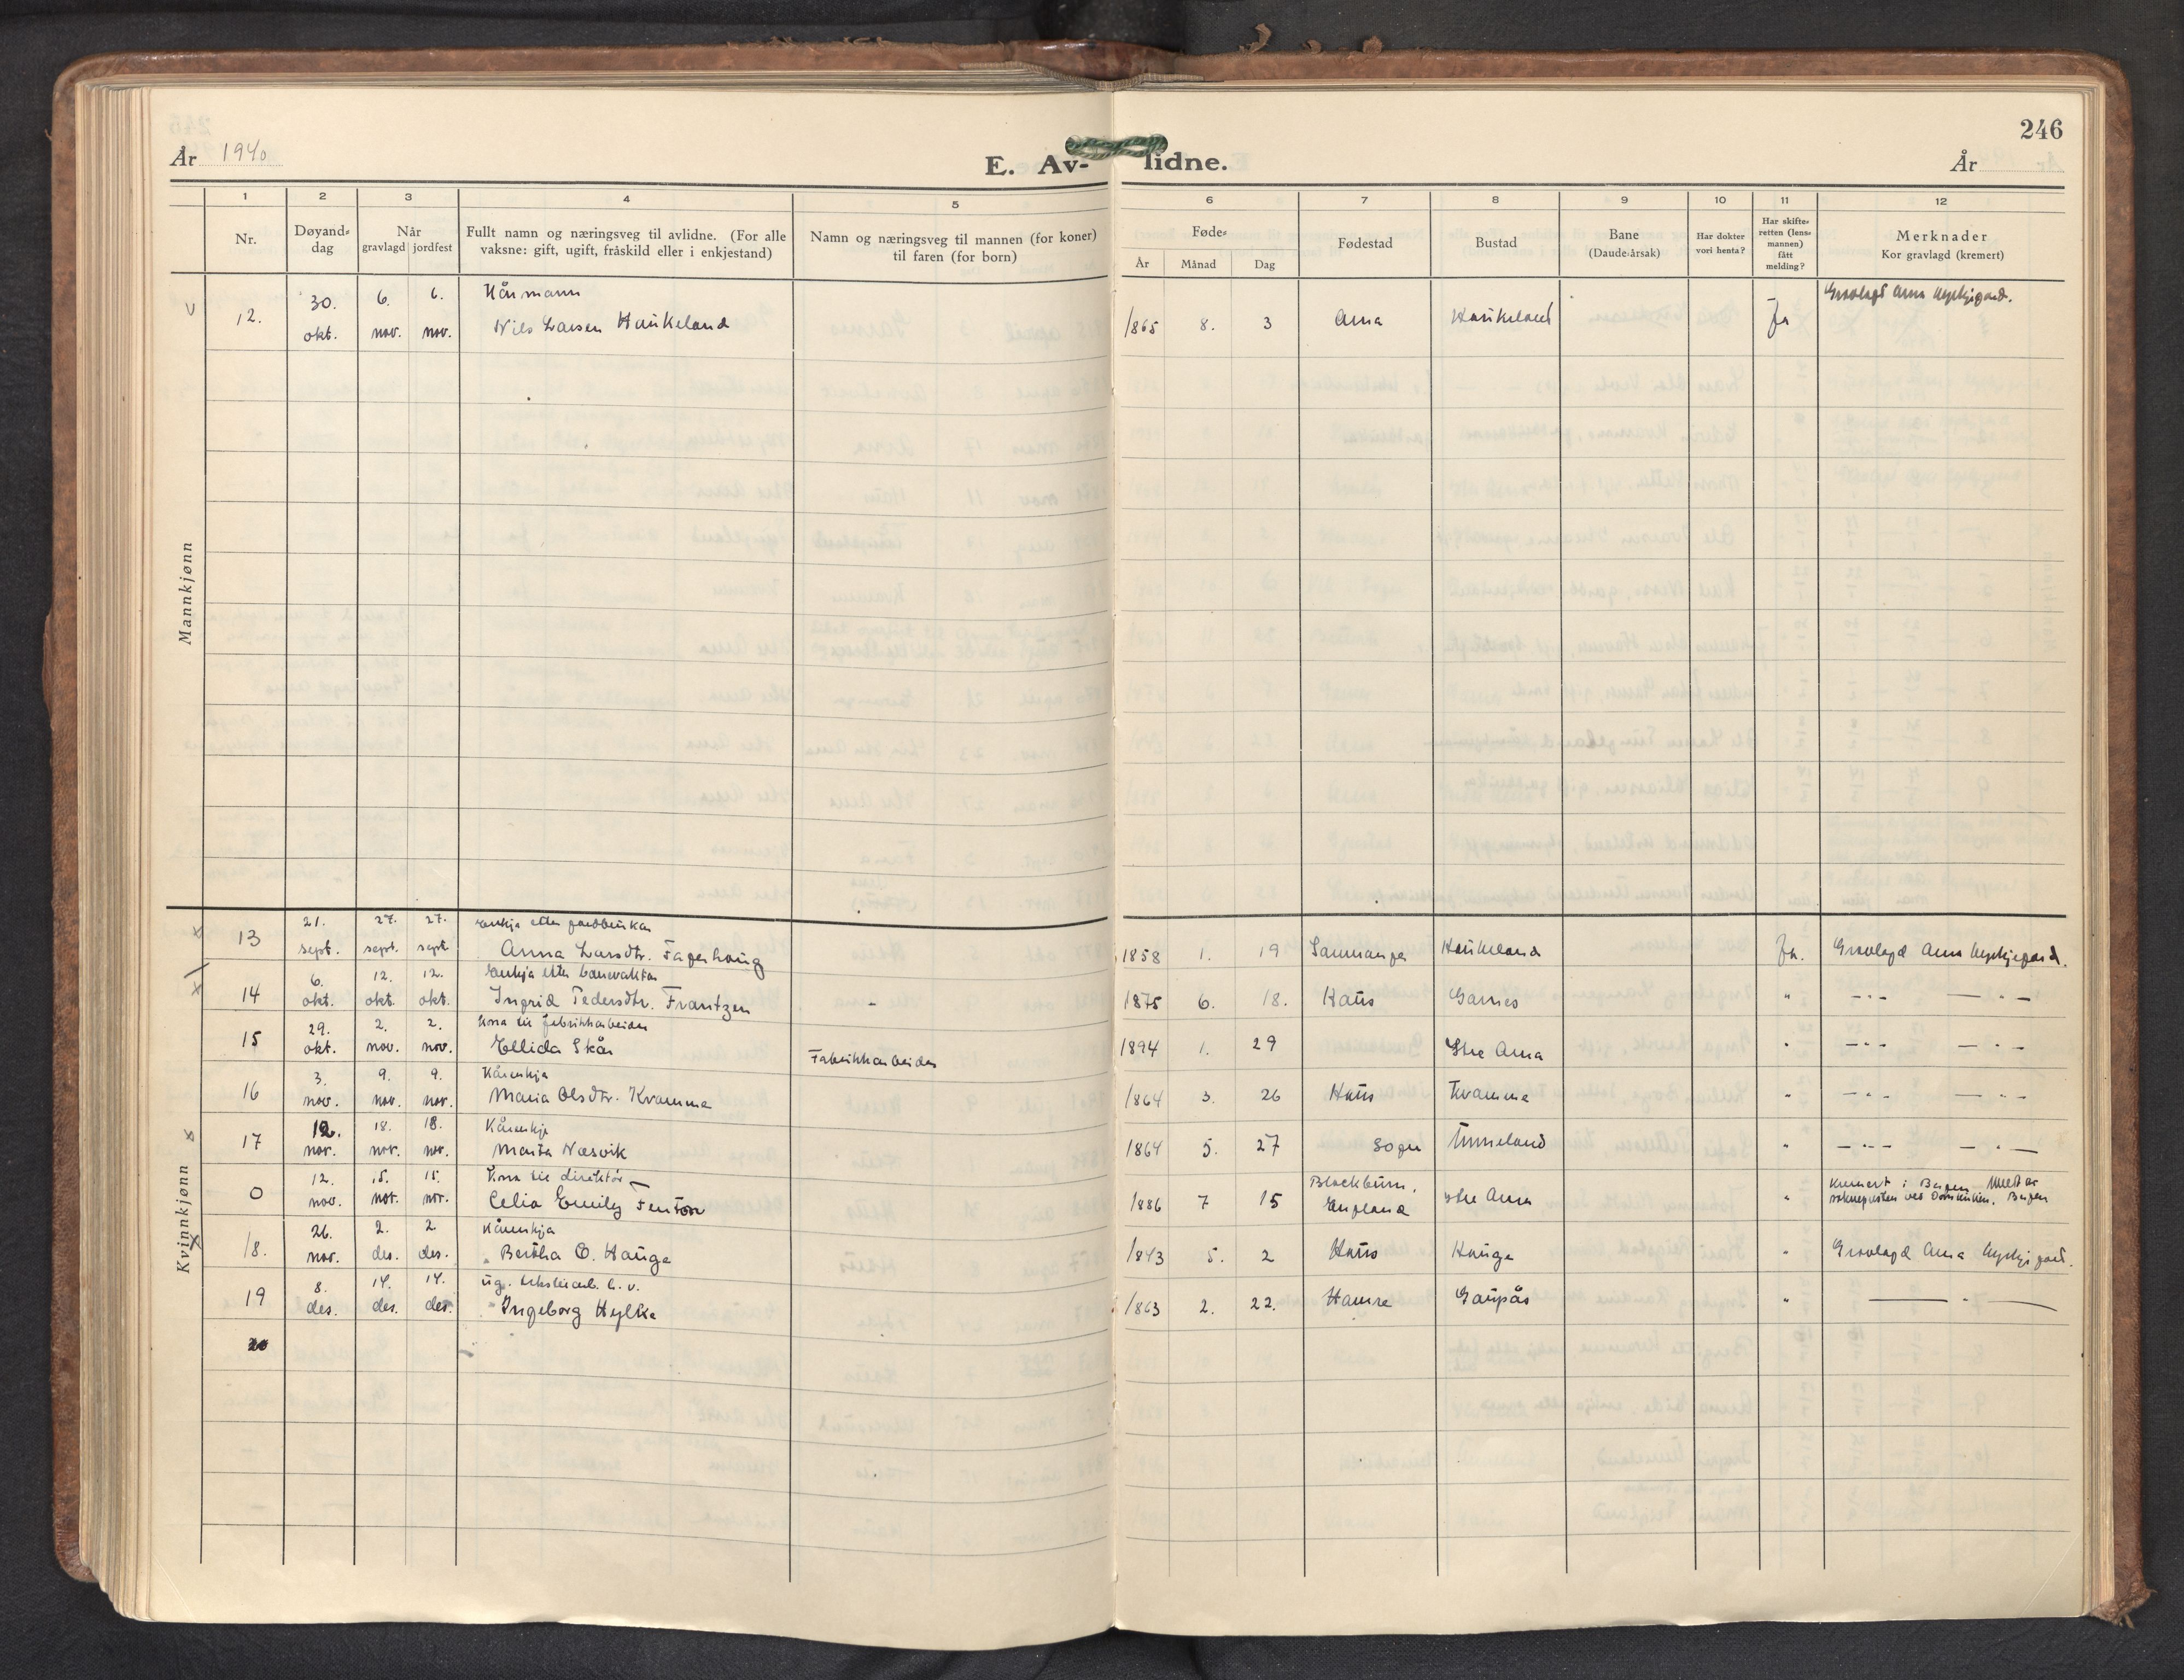 246
År 1940
E. Av- lidne.
År
1 2 3 4 5 6 7 8 9 10 11 12
Nr.
Døyand-dag
Når
gravlagd jordfest
Fullt namn og næringsveg til avlidne. (For alle
vaksne: gift, ugift, fråskild eller i enkjestand)
Namn og næringsveg til mannen (for koner)
til faren (for born)
Føde-
År Månad Dag
Fødestad
Bustad
Bane
(Daude-årsak)
Har dokter
vori henta?
Har skifte-
retten (lens-
mannen)
fått
melding?
Merknader
Kor gravlagd (kremert)
Mannkjønn
30. 6. 6. Kårmann Gravlagd Arna kyrkjegard.
v 12. okt. nov. nov. Nils Larsen Haukeland 1865 8. 3 Arna Haukeland Ja
Kvinnkjønn
21. 27. 27. Enkja etter gardbrukar
x 13 sept. sept. sept. Anna Larsdtr. Fagerhaug 1858 1. 19 Samnanger Haukeland Ja. Gravlagd Arna kyrkjegard.
6. 12. 12. Enkja etter banevaktar
x 14 okt. okt. okt. Ingrid Pedersdtr. Frantzen - 1875 6. 18. Haus Garnes " — " — — " —
29. 2. 2. Kona til fabrikkarbeider
15 okt. nov. nov. Ellida Skår Fabrikkarbeider 1894 1. 29 Ytre Arna " — " — — " —
3. 9. 9. Kårenkja
16 nov. nov. nov. Maria Olsdtr. Kvamme 1864 3. 26 Haus Kvamme " — " — — " —
12. 18. 18. Kårenkje
x 17 nov. nov. nov. Marta Næsvik 1864 5. 27 Sogn Unneland " — " — — " —
12. 15. 15. Kona til direktör Blackburn, Kremert i Bergen. Meldt av
0 nov. nov. nov. Celia Emily Fenton 1886 7 15 England Ytre Arna " sokneprestens ved Domkirken, Bergen
26. 2. 2 Kårenkja
x 18. nov. des. des. Bertha O. Hauge 1843 5. 2 Haus Hauge " Gravlagd Arna kyrkjegard.
8. 14. 14. ug.
19 des. des. des. Ingeborg Hylke 1863 2. 22. Hamre Gaupås " — " —
20